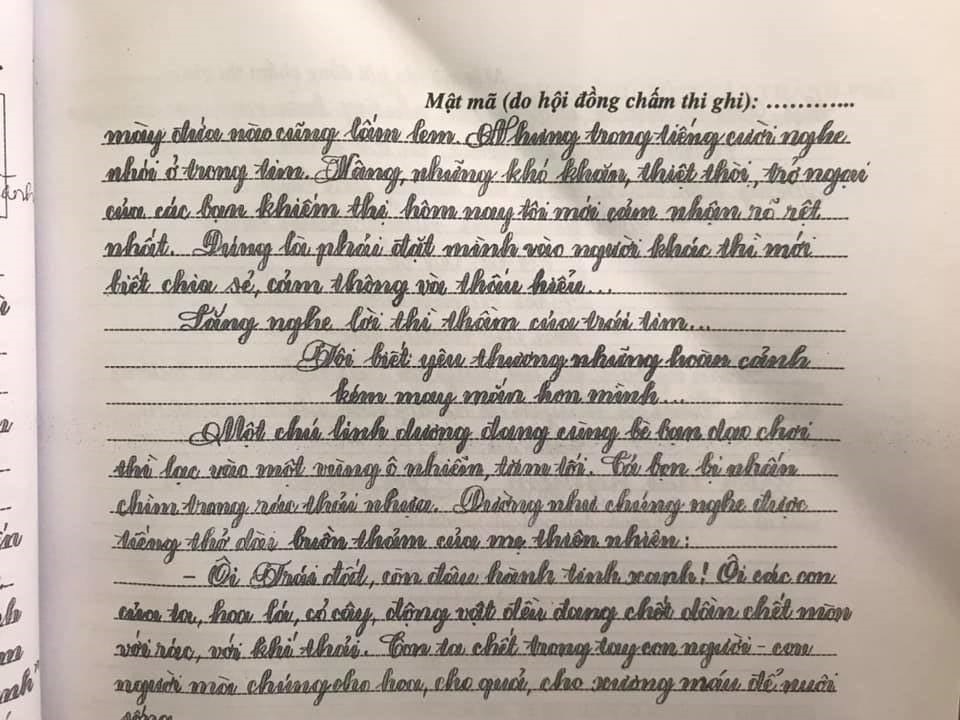 Mật mã (do hội đồng chấm thi ghi): ………...
mày đứa nào cũng lấm lem. Nhưng trong tiếng cười nghe
nhói ở trong tim. Vâng, những khó khăn, thiệt thòi, trở ngại
của các bạn khiếm thị hôm nay tôi mới cảm nhận rõ rệt
nhất. Đúng là phải đặt mình vào người khác thì mới
biết chia sẻ, cảm thông và thấu hiểu...
Lắng nghe lời thì thầm của trái tim...
Tôi biết yêu thương những hoàn cảnh
kém may mắn hơn mình...
Một chú linh dương đang cùng bè bạn dạo chơi
thì lạc vào một vùng ô nhiễm, tăm tối. Cả bọn bị nhấn
chìm trong rác thải nhựa. Dường như chúng nghe được
tiếng thở dài buồn thảm của mẹ thiên nhiên:
- Ôi Trái đất, còn đâu hành tinh xanh! Ôi các con
của ta, hoa lá, cỏ cây, động vật đều đang chết dần chết mòn
với rác, với khí thải. Con ta chết trong tay con người - con
người mà chúng cho hoa, cho quả, cho xương máu để nuôi
sống